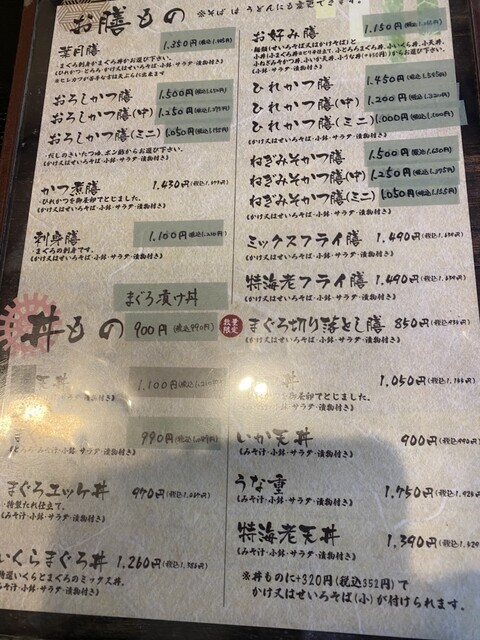 お膳もの
葉月膳 1,350円
・まぐろ刺身かまぐろ丼からお選び下さい。
おろしかつ膳 1,500円(税込1,650円)
おろしかつ膳(中) 1,250円(税込1,375円)
おろしかつ膳(ミニ) 1,050円(税込1,155円)
・だしのきいたつゆ、ポン酢からお選び下さい。
(かけ又はせいろそば・小鉢・サラダ・漬物付き)
かつ煮膳 1,430円
・ひれかつを御姜卵でとじました。
(かけ又はせいろそば・小鉢・サラダ・漬物付き)
刺身膳 1,100円(税込1,210円)
・まぐろの刺身です。
(かけ又はせいろそば・小鉢・サラダ・漬物付き)
お好み膳 1,150円
ひれかつ膳 1,450円(税込1,595円)
ひれかつ膳(中) 1,200円(税込1,320円)
ひれかつ膳(ミニ) 1,000円(税込1,100円)
(かけ又はせいろそば・小鉢・サラダ・漬物付き)
ねぎみそかつ膳 1,500円(税込1,650円)
ねぎみそかつ膳(中) 1,250円(税込1,375円)
ねぎみそかつ膳(ミニ) 1,050円(税込1,155円)
(かけ又はせいろそば・小鉢・サラダ・漬物付き)
ミックスフライ膳 1,490円(税込1,639円)
(かけ又はせいろそば・小鉢・サラダ・漬物付き)
特海老フライ膳 1,490円(税込1,639円)
(かけ又はせいろそば・小鉢・サラダ・漬物付き)
数量限定 まぐろ切り落とし膳 850円(税込935円)
(かけ又はせいろそば・小鉢・サラダ・漬物付き)
丼もの
まぐろ漬け丼
900円(税込990円)
天丼 1,100円(税込1,210円)
(みそ汁・小鉢・サラダ・漬物付き)
990円(税込1,089円)
みそ汁・小鉢・サラダ・漬物付き)
まぐろユッケ丼 970円(税込1,067円)
特製だれ仕立て。
(みそ汁・小鉢・サラダ・漬物付き)
いくらまぐろ丼 1,260円(税込1,386円)
特選いくらとまぐろのミックス丼。
(みそ汁・小鉢・サラダ・漬物付き)
丼 1,050円(税込1,155円)
卵でとじました。
(みそ汁・小鉢・サラダ・漬物付き)
いか天丼 900円(税込990円)
(みそ汁・小鉢・サラダ・漬物付き)
うな重 1,750円(税込1,925円)
(みそ汁・小鉢・サラダ・漬物付き)
特海老天丼 1,390円(税込1,529円)
(みそ汁・小鉢・サラダ・漬物付き)
※丼ものに+320円(税込352円)で
かけ又はせいろそば(小)が付けられます。